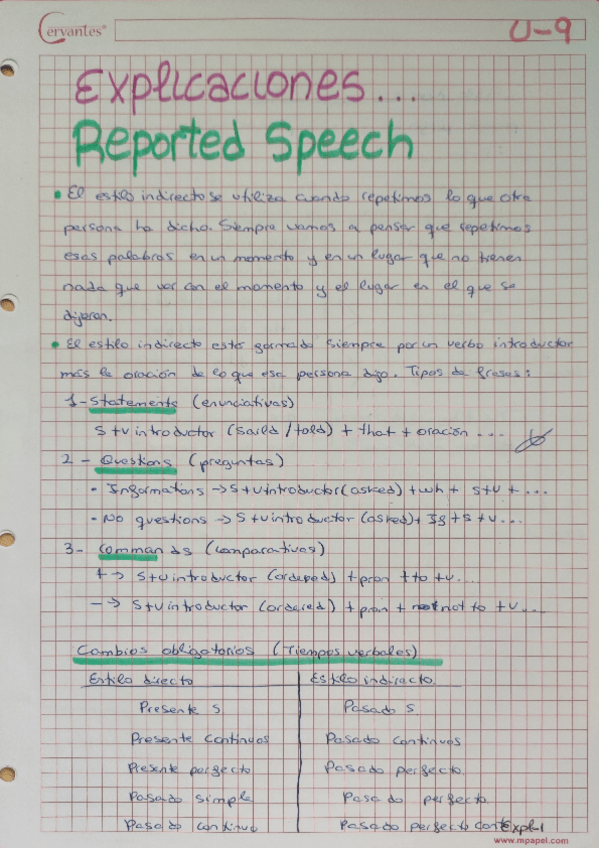 Cervantes®
U-9
Explicaciones...
Reported Speech
• El estilo indirecto se utiliza cuando repetimos lo que otra
persona ha dicho. Siempre vamos a pensar que repetimos
esas palabras en un momento y en un lugar que no tienen
nada que ver con el momento y el lugar en el que se
dijeron.
• El estilo indirecto está formado siempre por un verbo introductor
más la oración de lo que esa persona dijo. Tipos de frases:
1- Statements (enunciativas)
S+v introductor (Said / told) + that + oración ...
2 - Questions (preguntas)
• Informations -> S+v introductor (asked) + wh + S+v + ...
• No questions -> S+v introductor (asked) + If + S + v...
3- Commands (comparativas)
+ -> S+v introductor (ordered) + pron + to + v....
- -> S+v introductor (ordered) + pron + not to + v...
Cambios obligatorios (Tiempos verbales)
Estilo directo Estilo indirecto
Presente S. Pasado S.
Presente continuos Pasado continuos
Presente perfecto Pasado perfecto.
Pasado simple Pasado perfecto
Pasado continuo Pasado perfecto cont
Expl-1
www.mpapel.com